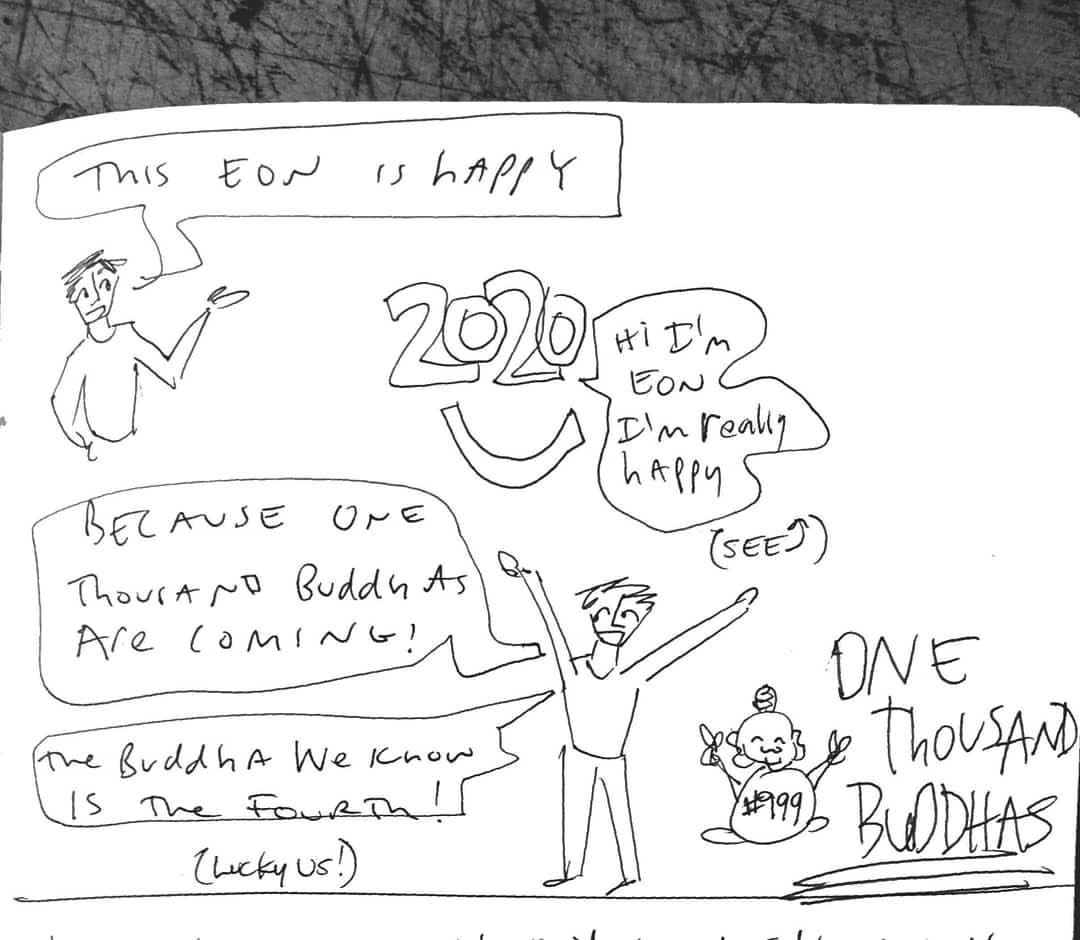 THIS EON IS hAPPY
2020
Hi I'm
EON
I'm really
hAPPy
(SEE⤴)
BECAUSE ONE
ThouSAND BuddhAs
Are COMING!
the BuddhA We Know
IS The FourTh!
(Lucky Us!)
#999
ONE
ThOUSAND
BUDDHAS